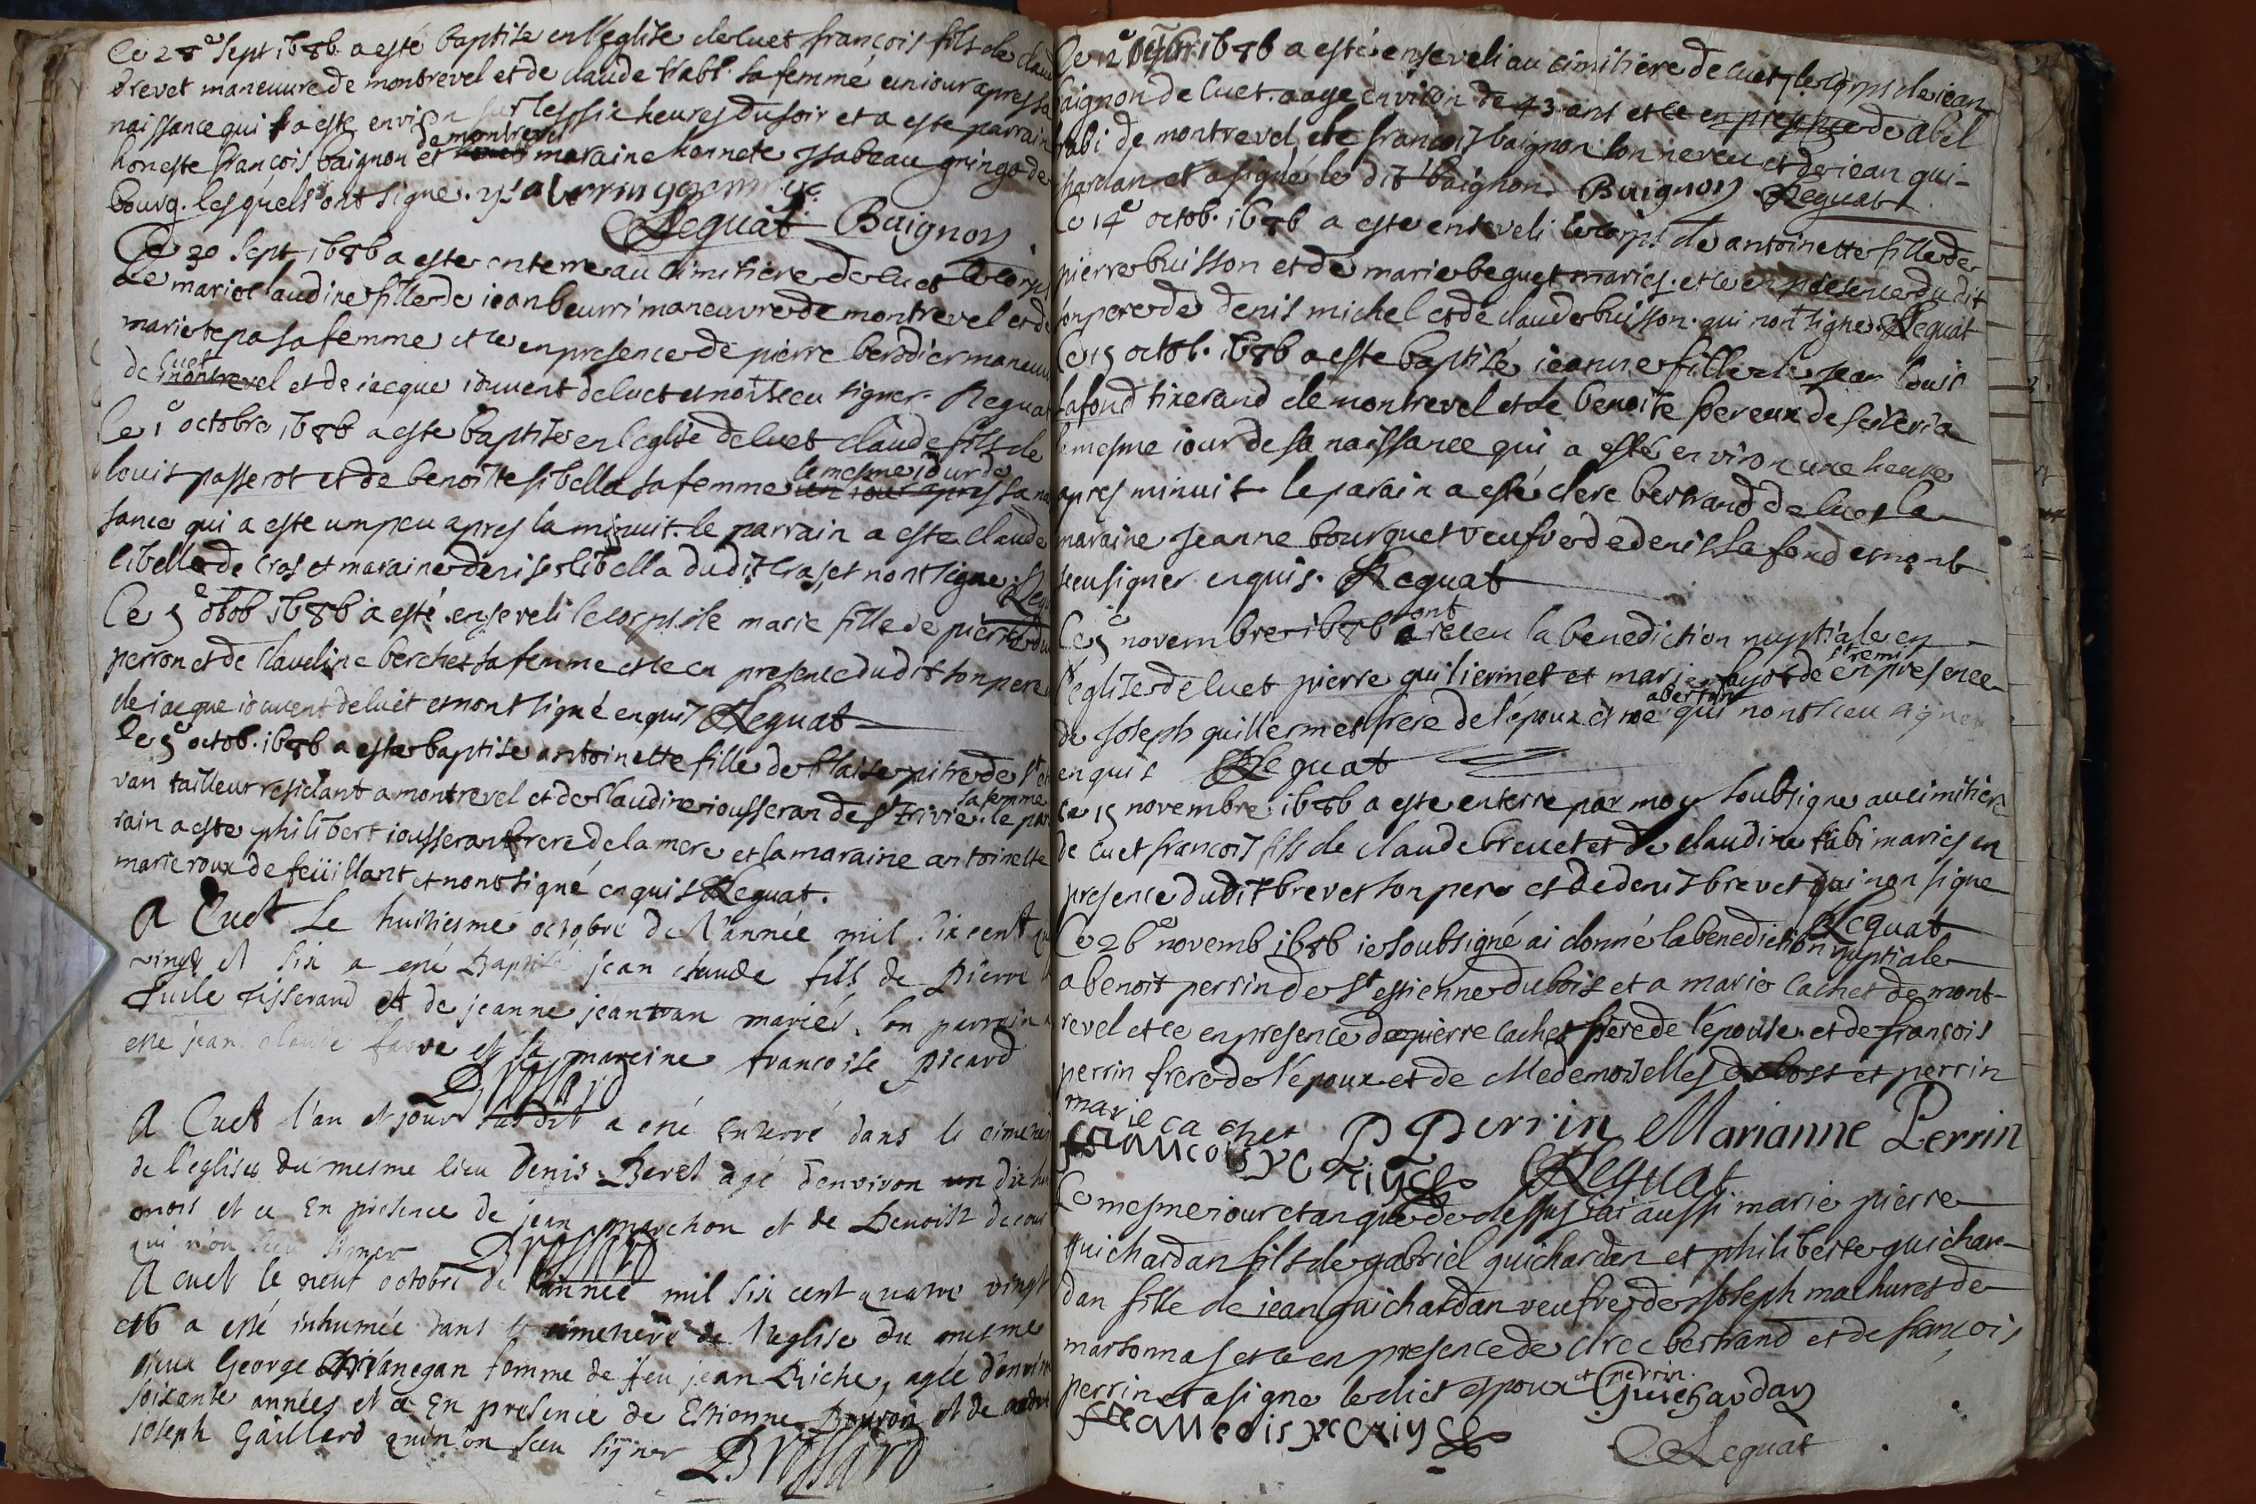 Ce 28e Sept 1686 a esté baptisé en l'eglise de cuet françois fils de clau
brevet maneuvre de montrevel et de claude rabi sa femme un iour apres sa
naissance qui a este environ sur les six heures du soir et a este parrain
honeste françois baignon de montrevel et maraine honnete ysabeau gringo de
bourg. lesquels ont signe.
Reguat Baignon
Ce 30 Sept 1686 a este enterre au cimitiere de cuet le corps
de marie claudine fille de iean beurri maneuvre de montrevel et de
marie tepa sa femme et ce en presence de pierre berddier maneuv
de cuet montrevel et de iacque iouvent de cuet et nont sceu signer. Reguat
Ce 1e octobre 1686 a este baptisé en l'eglise de cuet claude fils de
louis passerot et de benoitte libella sa femme le mesme iour de un iour apres sa nai
sance qui a este un peu apres la minuit. le parrain a este claude
libella de cras et maraine denise libella du dit cras, et nont signe. Regu
Ce 5e octob 1686 a esté enseveli le corps de marie fille de pierre du
perron et de claudine berchet sa femme et ce en presence du dit son pere
de iacque iouvent de cuet et nont signé enquis Reguat
Ce 5e octob. 1686 a este baptisé antoinette fille de blaise pitre de St
van tailleur residant a montrevel et de claudine iousseran de St Trivie sa femme. le par
rain a este philibert iousseran frere de la mere et la maraine antoinette
marie roux de feüillant et nont signé enquis Reguat.
A Cuet Le huitiesme octobre de l'année mil six cent qua
vingt et six a esté Baptisé jean claude fils de Pierre
tisserand et de jeanne jeantran mariés. son parrain a
esté jean claude favre et sa mareine francoise picard
Brossard
A Cuet l'an et jour susdit a esté enterré dans le cimetier
de l'eglise du mesme lieu Denis Beret agé d'environ un dix hu
mois et ce En presence de jean marchon et de Benoist decour
qui n'on sceu signer Brossard
A cuet le neuf octobre de l'année mil six cent quatre vingt
et 6 a esté inhumée dans le cimetiere de l'eglise du mesme
lieu George Vanegan femme de feu jean Riche, agée d'environ
soixante années et ce En presence de Estienne Bouvoir et de
joseph Gaillard qui n'on sceu signer Brossard
Ce 12e octobr. 1686 a esté enseveli au cimitiere de cuet le corps de iean
baignon de cuet. aagé environ de 43 ans et ce en presence de abel
rabi de montrevel, de françois baignon son neveu et de iean gui-
chardan et a signé le dit baignon. Baignon Reguat
Ce 14e octob. 1686 a este enseveli le corps de antoinette fille de
pierre buisson et de marie beguet maries. et ce en presence du dit
son pere de denis michel et de claude buisson. qui nont signe. Reguat
Ce 15 octob. 1686 a este baptisé ieanne fille de jean louis
lafond tixerand de montrevel et de benoite pereux de seileria
le mesme iour de sa naissance qui a esté environ une heure
apres minuit le parain a esté clere bertrand de cuet la
maraine jeanne bourguet veufve de denis lafond et nont
sceu signer enquis. Reguat
Ce 5e novembre 1686 ont a receu la benediction nuptiale en
l'eglise de cuet pierre guillermet et marie fayot de St remi en presence
de joseph guillermet frere de l'époux et noe aberton qui nont sceu signer
enquis Reguat
Ce 15 novembre. 1686 a este enterre par moy soubsigne au cimitiere
de cuet francois fils de claude brevet et de claudine rabi maries en
presence du dit brevet son pere et de denis brevet qui non signe
Reguat
Ce 26e novemb 1686 ie soubsigné ai donné la benediction nuptiale
a benoit perrin de St estienne du bois et a marie cachet de mont-
revel et ce en presence de pierre cachet frere de l'epouse. et de françois
perrin frere de l'époux et de Medemoiselles et perrin
marie cachet P Perrin Marianne Perrin
francois Reguat
Ce mesme iour et an que de dessus iai aussi marie pierre
guichardan fils de gabriel guichardan et philiberte guichar-
dan fille de iean guichardan veufve de joseph mathuret de
marsonnas et ce en presence de clere bertrand et de françois
perrin et a signe le dict epoux et perrin. Guichardan
francois
Reguat